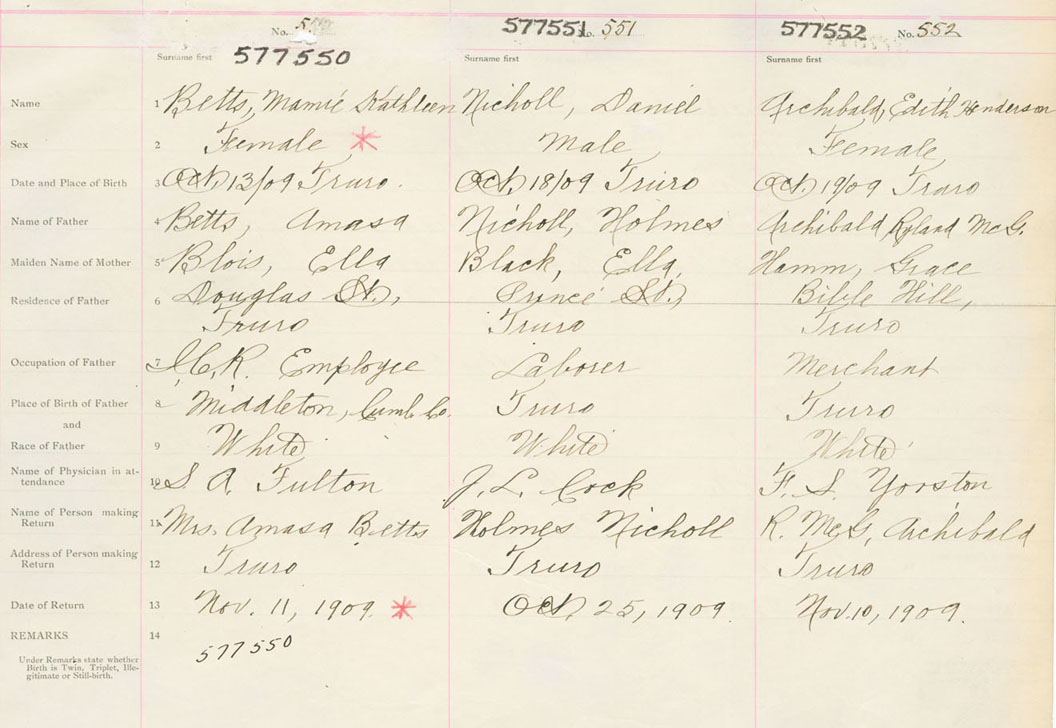 No. 577551 No. 551 577552 No. 552
577550
Surname first Surname first Surname first
Name 1 Betts, Mamie Kathleen Nicholl, Daniel Archibald, Edith Henderson
Sex 2 Female * Male Female
Date and Place of Birth 3 Oct. 13/09 Truro. Oct. 18/09 Truro Oct. 19/09 Truro
Name of Father 4 Betts, Amasa Nicholl, Holmes Archibald Ryland McG.
Maiden Name of Mother 5 Blois, Ella Black, Ella, Hamm, Grace
Residence of Father 6 Douglas St., Prince St., Bible Hill,
Truro Truro Truro
Occupation of Father 7 I.C.R. Employee Laborer Merchant
Place of Birth of Father 8 Middleton, Cumb. Co. Truro Truro
and
Race of Father 9 White White White
Name of Physician in at-
tendance 10 S. A. Fulton J. L. Cock F. S. Yorston
Name of Person making
Return 11 Mrs. Amasa Betts Holmes Nicholl R. McG. Archibald
Address of Person making
Return 12 Truro Truro Truro
Date of Return 13 Nov. 11, 1909. * Oct. 25, 1909. Nov. 10, 1909.
REMARKS 14
577550
Under Remarks state whether
Birth is Twin, Triplet, Ille-
gitimate or Still-birth.